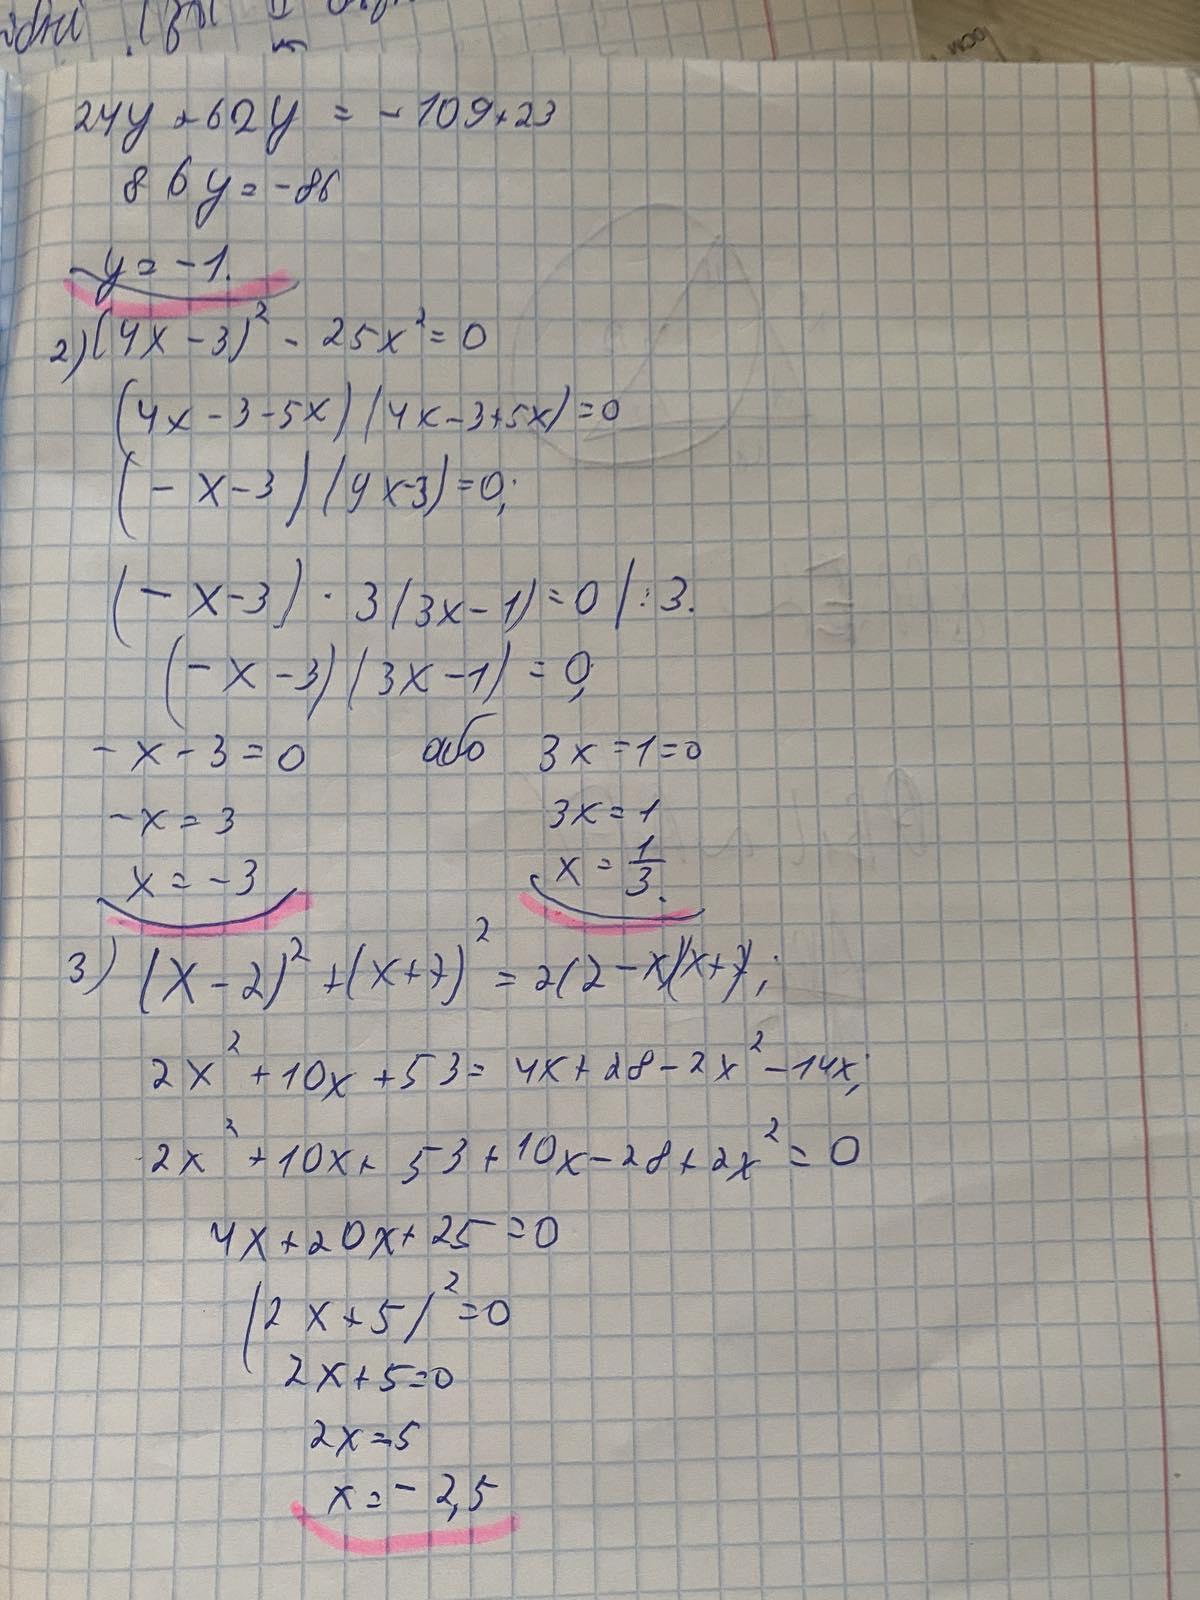 24y + 62y = - 109 + 23
86y = -86
y = -1.
2) (4x - 3)² - 25x² = 0
(4x - 3 - 5x) (4x - 3 + 5x) = 0
(- x - 3) (9x - 3) = 0;
(- x - 3) · 3 (3x - 1) = 0 | : 3.
(- x - 3) (3x - 1) = 0;
- x - 3 = 0 або 3x = 1 = 0
-x = 3 3x = 1
x = -3 x = 1/3.
3) (x - 2)² + (x + 7)² = 2(2 - x)(x + 7);
2x² + 10x + 53 = 4x + 28 - 2x² - 14x;
2x² + 10x + 53 + 10x - 28 + 2x² = 0
4x + 20x + 25 = 0
(2x + 5)² = 0
2x + 5 = 0
2x = 5
x = - 2,5